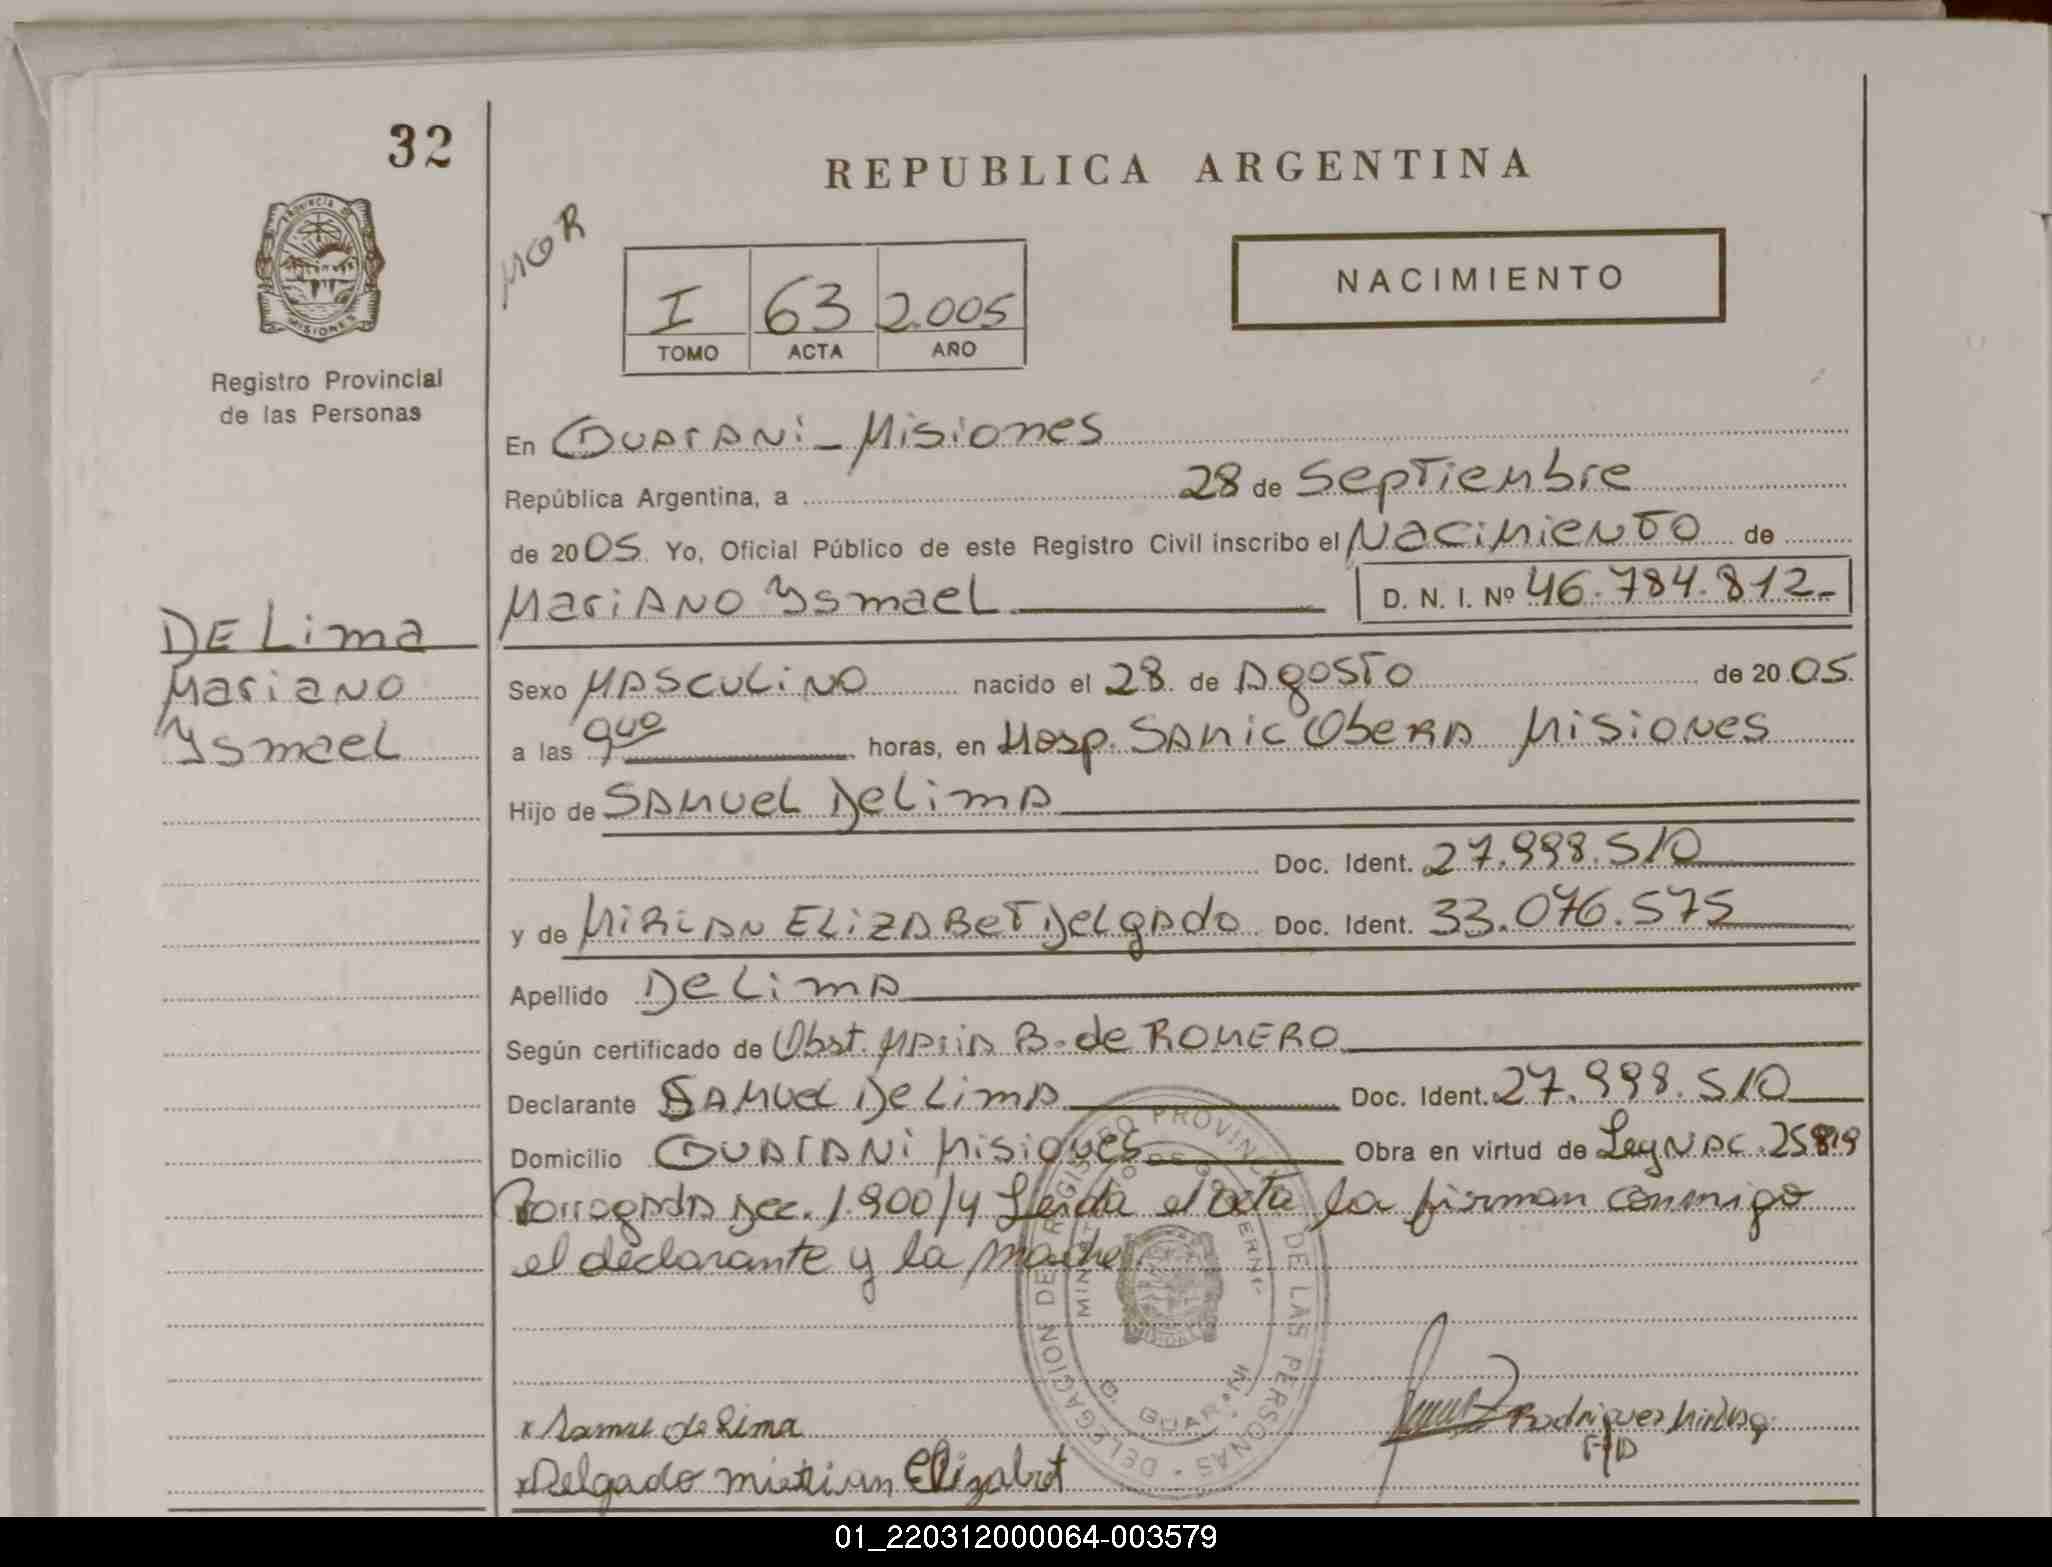 32
REPUBLICA ARGENTINA
MGR
I 63 2.005
TOMO ACTA AÑO
NACIMIENTO
PROVINCIA DE
MISIONES
Registro Provincial
de las Personas
En Guarani - Misiones
República Argentina, a 28 de Septiembre
de 2005. Yo, Oficial Público de este Registro Civil inscribo el Nacimiento de
Mariano Ysmael D. N. I. Nº 46.784.812-
De Lima
Mariano
Ysmael
Sexo Masculino nacido el 28 de Agosto de 2005.
a las 9,40 horas, en Hosp. Samic Obera Misiones
Hijo de Samuel De Lima
Doc. Ident. 27.998.510
y de Mirian Elizabet Delgado Doc. Ident. 33.076.575
Apellido De Lima
Según certificado de Obst. Maria B. de Romero
Declarante Samuel De Lima Doc. Ident. 27.998.510
Domicilio Guarani Misiones Obra en virtud de Ley Nac. 25819
Porrogada Dec. 1.900/4 Leida el acta la firman conmigo
el declarante y la madre.
DELEGACION DE REGISTRO PROVINCIAL DE LAS PERSONAS
G. GUARANI
x Samuel de Lima
Rodriguez
x Delgado Mirian Elizabet
01_220312000064-003579